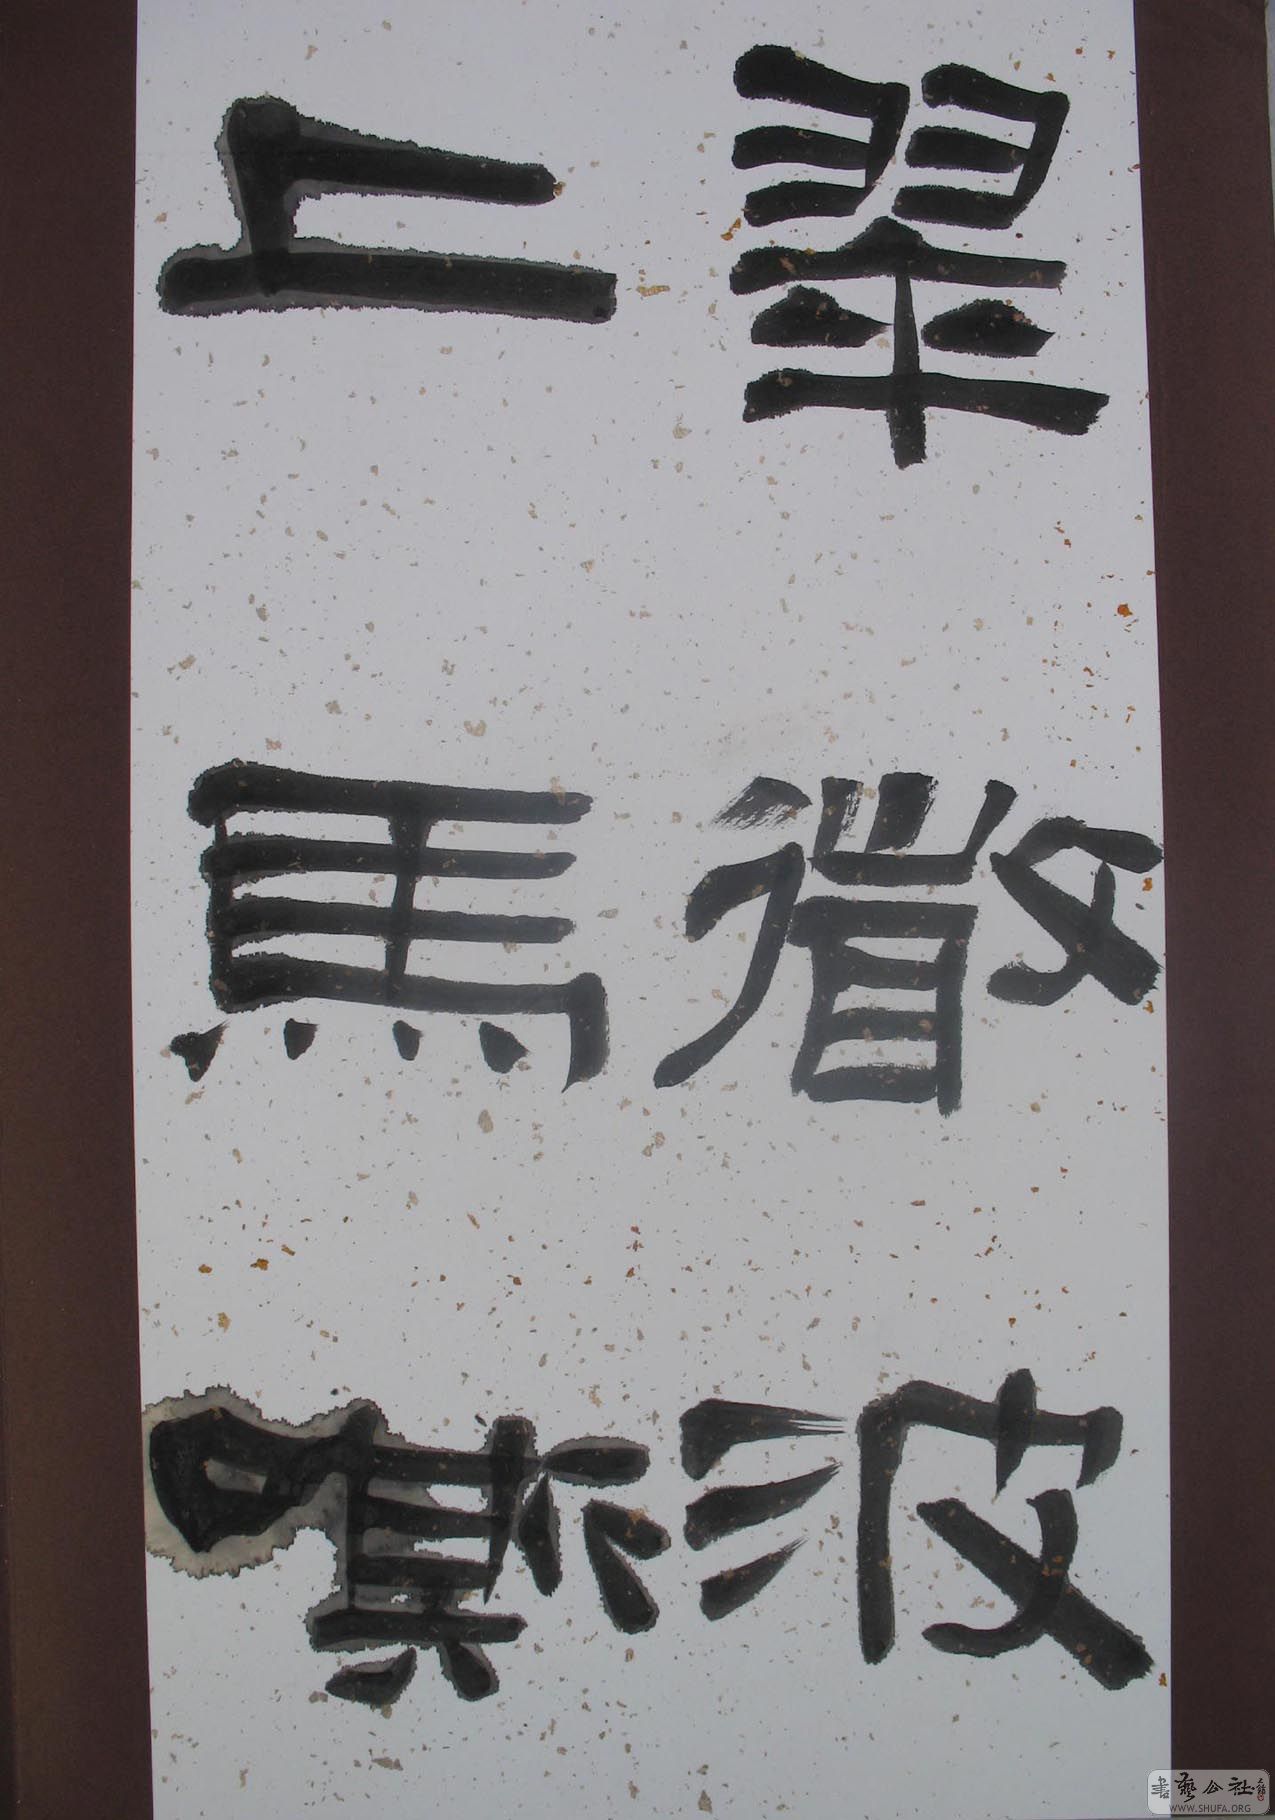 翠微波
上馬嘶
書藝公社
WWW.SHUFA.ORG